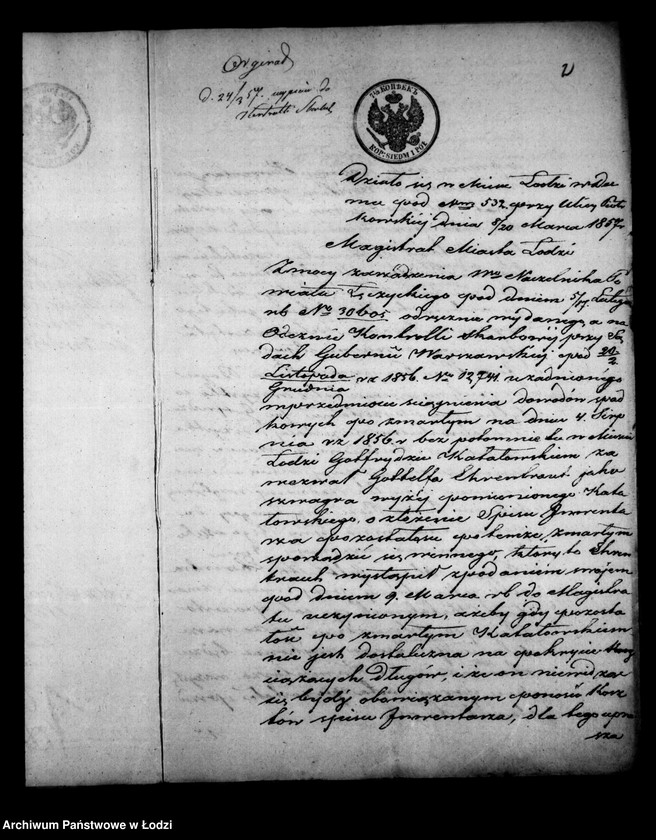 Orginał
2
d. 24/3 57. wypis do
Kontrolli Skarb.
7½ КОПѢЕКЪ
KOP: SIEDM I PÓŁ
Działo się w Mieście Łodzi w Do
mu pod Nrem 532. przy Ulicy Piotr
kowskiej dnia 8/20 Marca 1857 r
Magistrat Miasta Łodzi
Z mocy zarządzenia Wgo Naczelnika Po
wiatu Łęczyckiego pod dniem 5/17 Lutego
rb No 30605 odręcznie wydanego, a na
Odezwie Kontrolli Skarbowej przy Są
dach Gubernii Warszawskiej pod 20/2
Listopada
Grudnia rz 1856. No 12,741. uzasadnionego
w przedmiocie ściągnienia dowodów spad
kowych po zmarłym na dniu 4. Sierp
nia rz 1856 r bezpotomnie tu w mieście
Łodzi Gottfrydzie Katatowskim za
wezwał Gottholfa Ehrentraut jako
szwagra wyżej pomienionego Kata
towskiego, o złożenie Spisu Inwenta
rza po pozostałości po tymże zmarłym
sporządzić się winnego, który to Ehren
traut wystąpił z podaniem swojem
pod dniem 9. Marca rb do Magistra
tu uczynionym, ażeby gdy pozosta
łość po zmarłym Katatowskim
nie jest dostateczna na pokrycie
ciążących długów, i że on nie widzac
się być obowiązanym ponosić kosz
tów spisu Inwentarza, dla tego upra
sza
Archiwum Państwowe w Łodzi